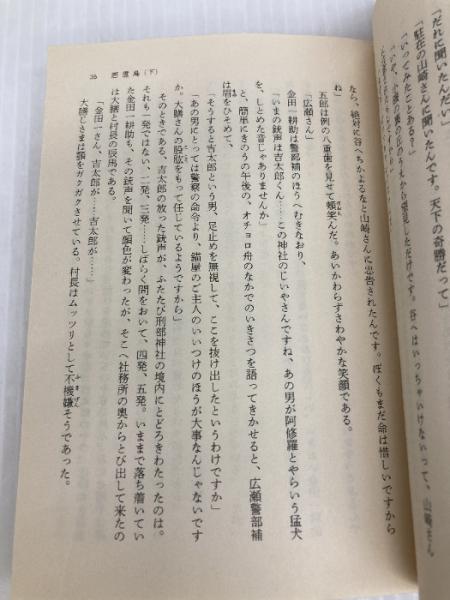 36　悪霊島(下)
「だれに聞いたんだい」
「駐在の山崎さんに聞いたんです。天下の奇勝だって」
「いってみたことある?」
なら、絶対に谷へちかよるなと山崎さんに忠告されたんです。ぼくもまだ命は惜しいですから
ね」
五郎は例の八重歯を見せて頰笑んだ。あいかわらずさわやかな笑顔である。
「広瀬さん」
金田一耕助は警部補のほうへむきなおり、
「いまの銃声は吉太郎くん……この神社のじいやさんですね、あの男が阿修羅とやらいう猛犬
を、しとめた音じゃありませんか」
と、簡単にきのうの午後の、オチョロ舟のなかでのいきさつを語ってきかせると、広瀬警部補
は眉をひそめて、
「そうすると吉太郎という男、足止めを無視して、ここを抜け出したというわけですか」
「あの男にとっては警察の命令より、錨屋のご主人のいいつけのほうが大事なんじゃないです
か。大膳さんの股肱をもって任じているようですから」
そのときである、吉太郎の放った銃声が、ふたたび刑部神社の境内にとどろきわたったのは。
それも一発ではない、二発、三発……しばらく間をおいて、四発、五発。いままで落ち着いてい
た金田一耕助も、その銃声を聞いて顔色が変わったが、そこへ社務所の奥からとび出して来たの
は大膳と村長の辰馬である。
「金田一さん、吉太郎が……吉太郎が……」
大膳じさまは顎をガクガクさせている。村長はムッツリとして不機嫌そうであった。